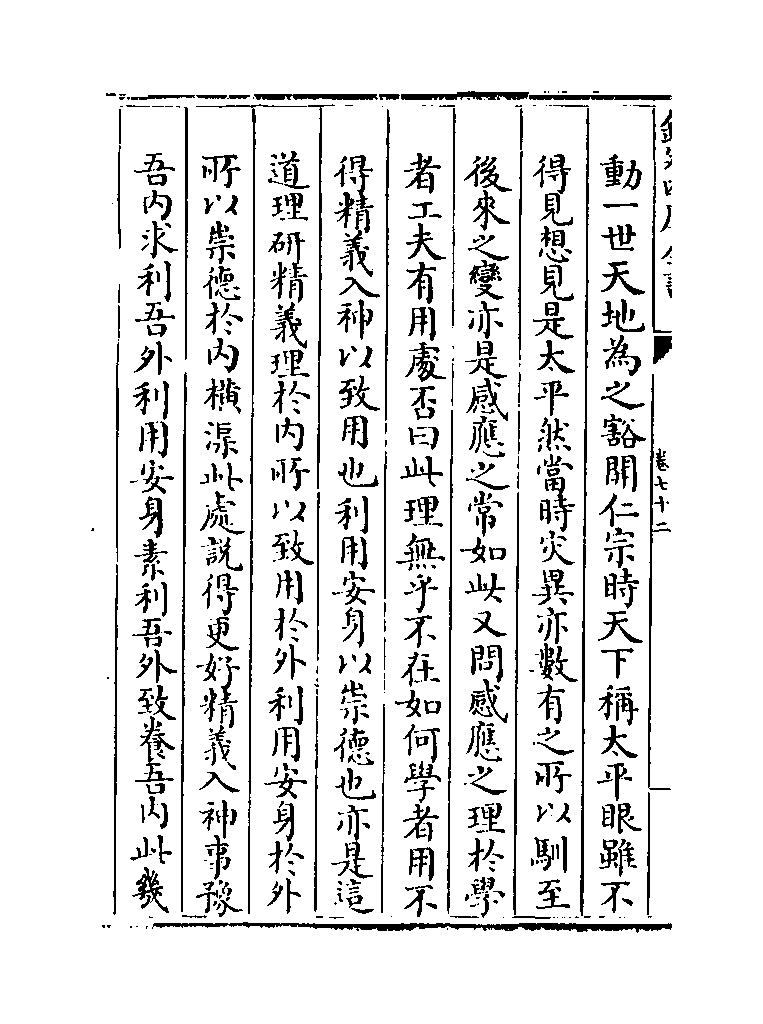 動一世天地為之豁開仁宗時天下稱太平眼雖不
得見想見是太平然當時災異亦數有之所以馴至
後來之變亦是感應之常如此又問感應之理於學
者工夫有用處否曰此理無乎不在如何學者用不
得精義入神以致用也利用安身以崇德也亦是這
道理研精義理於内所以致用於外利用安身於外
所以崇德於内横渠此處説得更好精義入神事豫
吾内求利吾外利用安身素利吾外致養吾内此幾
卷七十二